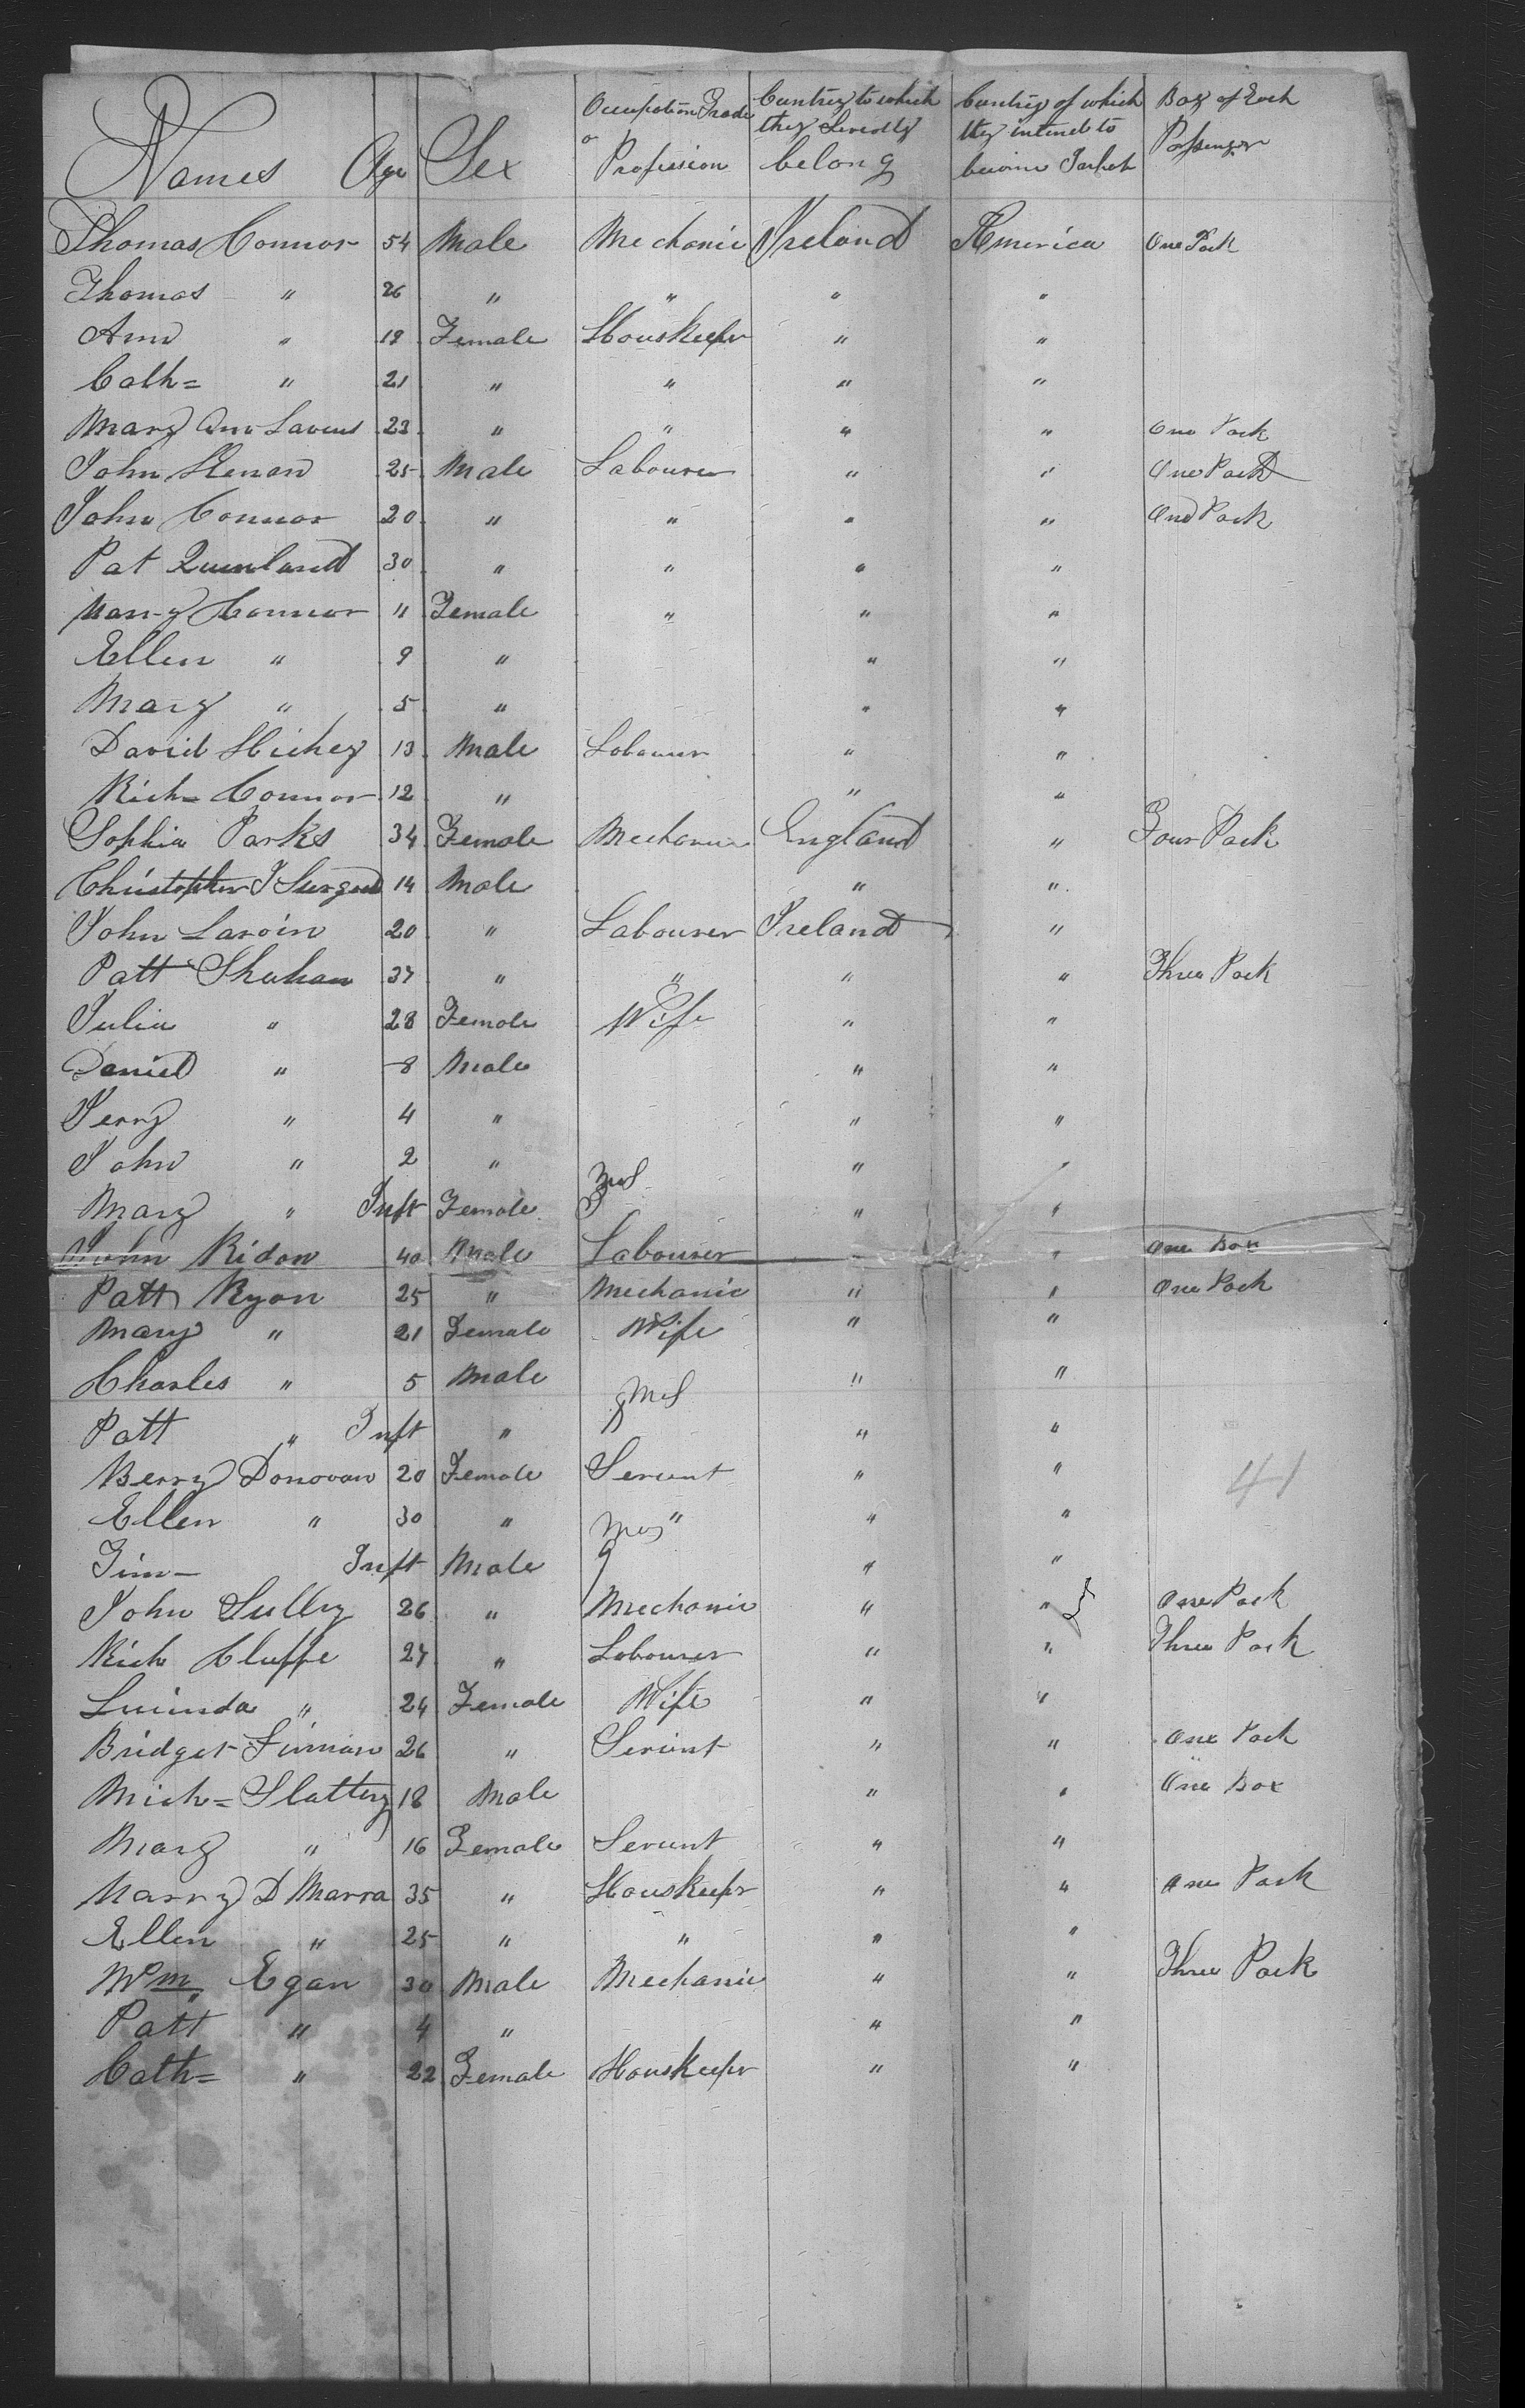 Names Age Sex Occupation Trade or Profession Cuntrey to which they Severelly belong Cuntrey of which they intend to become Bag of Each Passenger
Thomas Connor 54 Male Mechanic Ireland America One Pack
Thomas " 26 " " " "
Ann " 19 Female Houskeeper " "
Cath= " 21 " " " "
Mary Ann Lavens 23 " " " " One Pack
John Kenan 25 Male Labourer " " One Pack
John Connor 20 " " " " One Pack
Pat Quinland 30 " " " "
Marry Connor 11 Female " " "
Ellen " 9 " " "
Mary " 5 " " "
David Hickey 13 Male Labourer " "
Rich= Connor 12 " " "
Sophia Parks 34 Female Mechanic England " Four Pack
Christopher J 14 Male " "
John Lavoin 20 " Labourer Ireland "
Patt Shehan 37 " " " " Three Pack
Julia " 28 Female Wife " "
Daniel " 8 Male " "
Jerry " 4 " " "
John " 2 " " "
Mary " Inft Female " "
John Ridon 40 Male Labourer " " One Box
Patt Ryan 25 " Mechanic " " One Pack
Mary " 21 Female Wife " "
Charles " 5 Male " "
Patt " Inft " " "
Berry Donovan 20 Female Servent " "
Ellen " 30 " " " "
Tim - Inft Male " "
John Sully 26 " Mechanic " " One Pack
Rich Cluffe 27 " Labourer " " Three Pack
Lucinda " 24 Female Wife " "
Bridget Finnan 26 " Servent " " One Pack
Mich= Slattery 18 Male " " One Box
Mary " 16 Female Servent " "
Marry D Marra 35 " Houskeeper " " One Pack
Ellen " 25 " " " "
Wm. Egan 30 Male Mechanic " " Three Pack
Patt " 4 " " "
Cath= " 22 Female Houskeeper " "
41